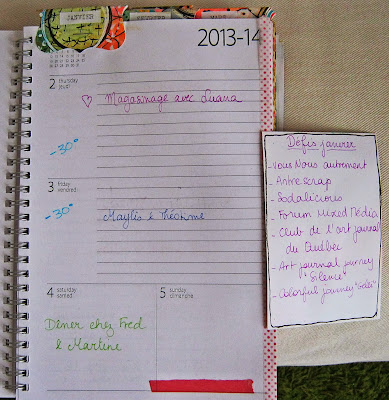 JANVIER
2013-14
2 thursday
jeudi
♡ Magasinage avec Luana
-30°
3 friday
vendredi
-30°
Maylis & Théotime
4 saturday
samedi
5 sunday
dimanche
Dîner chez Fred
& Martine
Défis janvier
-Vous Nous autrement
-Antrescrap
-Sodalicious
-Forum Mixed Média
-Club de l'art journal
du Québec
-Art journal journey
"Silence"
-Colorful journey